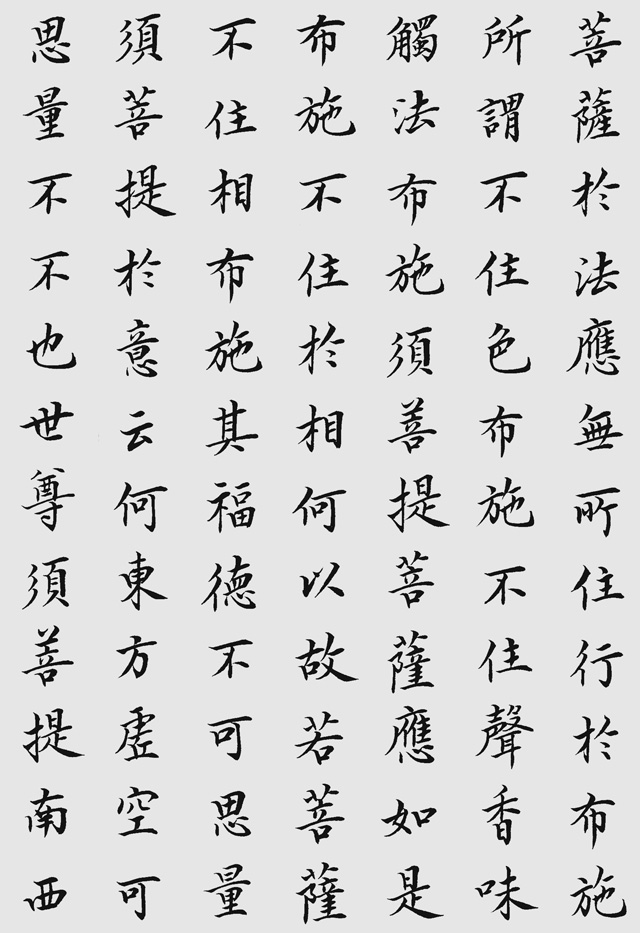 菩薩於法應無所住行於布施
所謂不住色布施不住聲香味
觸法布施須菩提菩薩應如是
布施不住於相何以故若菩薩
不住相布施其福德不可思量
須菩提於意云何東方虛空可
思量不不也世尊須菩提南西